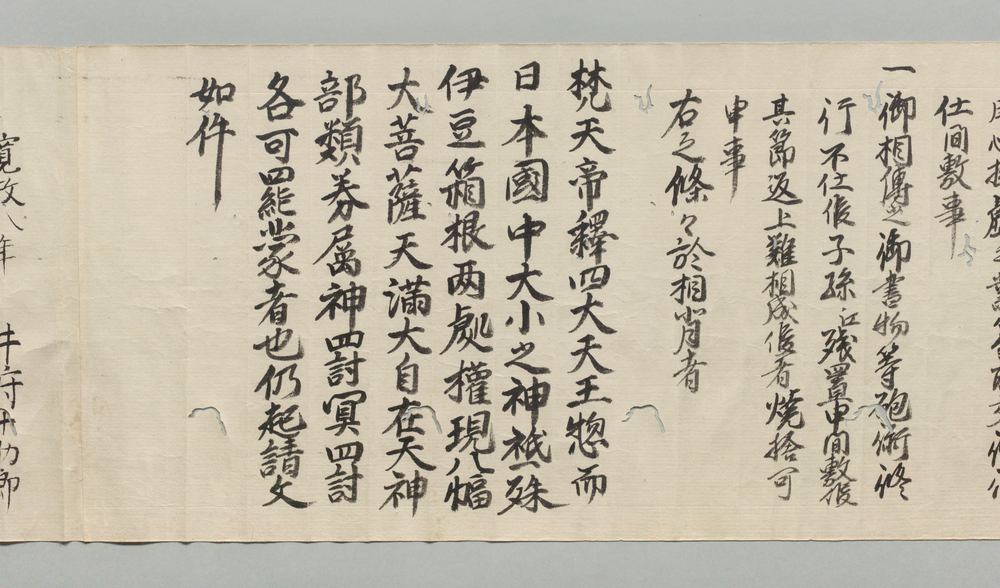 仕間敷事
一御相傳之御書物等砲術修
行不仕候子孫江残置申間敷候
其節返上難相成候者焼捨可
申事
右之條々於相背者
梵天帝釋四大天王惣而
日本國中大小之神祇殊
伊豆箱根両處權現八幡
大菩薩天満大自在天神
部類眷属神罰冥罰
各可罷蒙者也仍起請文
如件
寛政八年